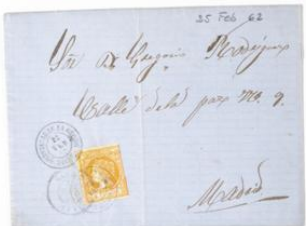 25 Feb 62
Sr. D. Gregorio Rodriguez
Calle de la paz No. 9.
Madrid